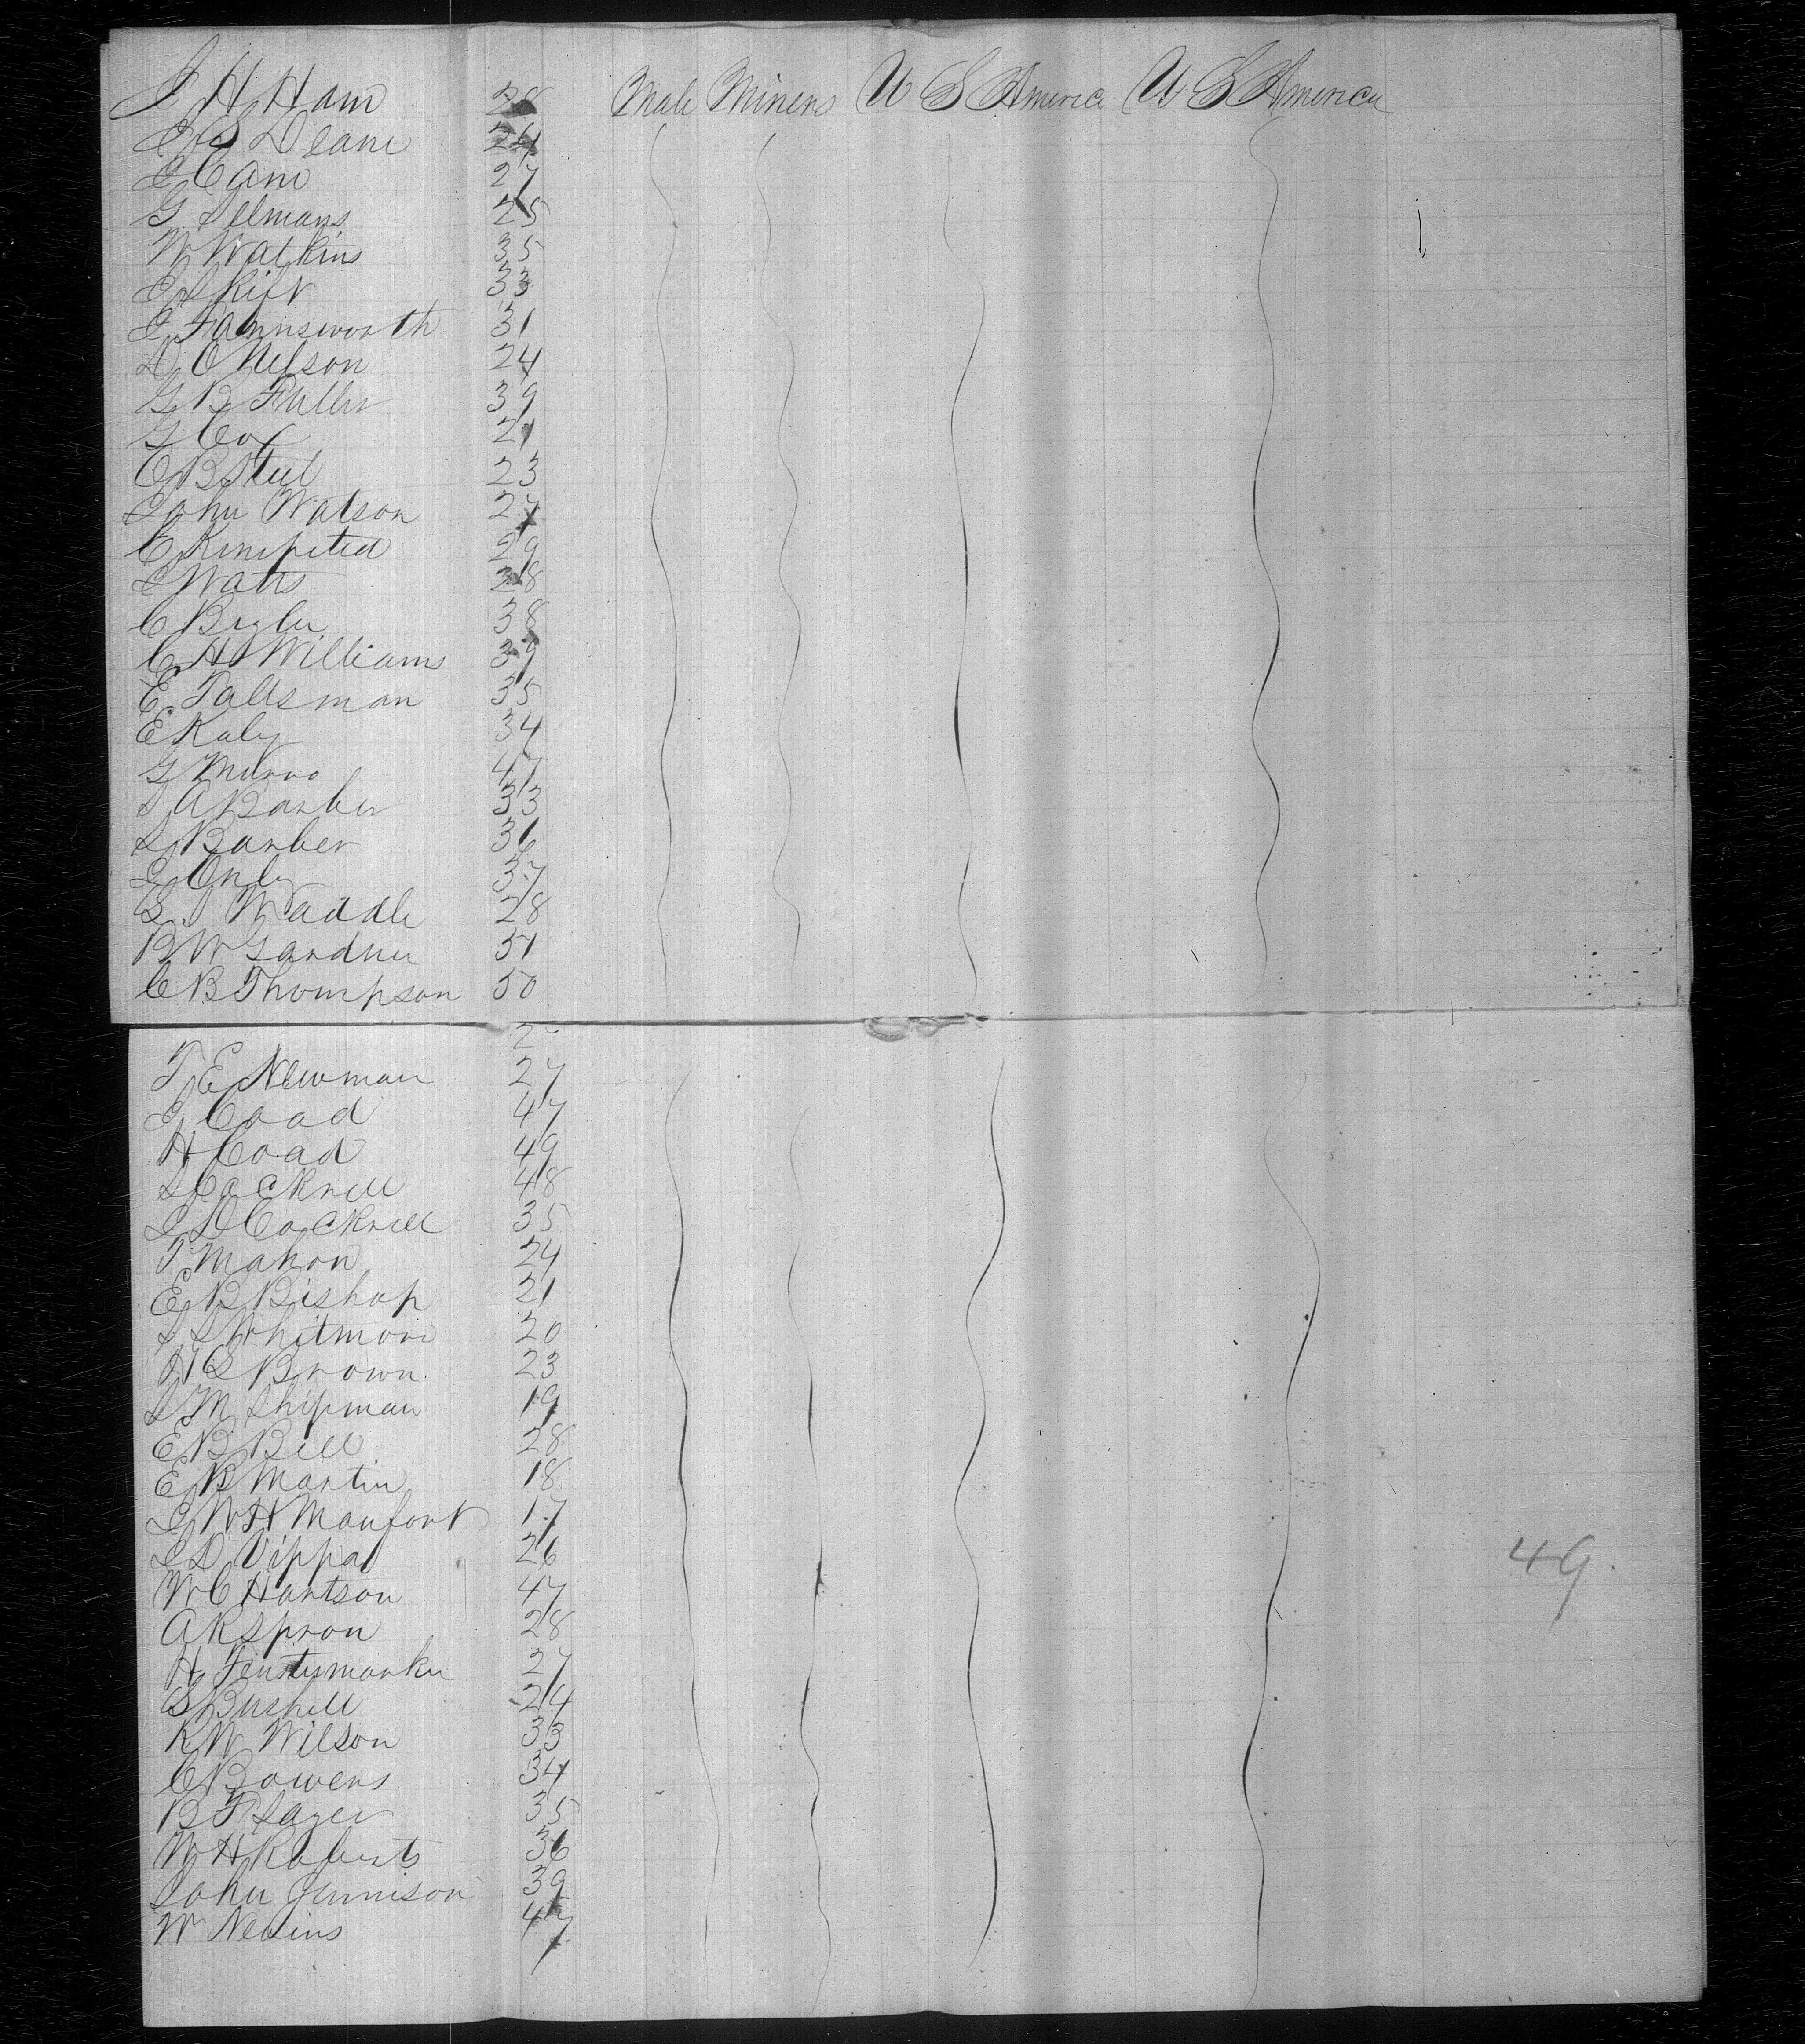 J H Ham 28 Male Miners U S America U S America
J S Deane 24
J Cam 27
G Selmans 25
W Watkins 35
J Skift 33
J Farnnsworth 31
D C Nelson 24
G B Fuller 39
G Cox 21
C B Steel 23
John Watson 27
C Kimpeted 29
J Watts 28
C Bigler 38
C H Williams 39
E Tallsman 35
E Kaly 34
G Munro 47
S A Barber 33
S Barber 36
J Only 37
S J Waddle 28
B W Gardner 51
C B Thompson 50
2
T E Newman 27
J Coad 47
H Coad 49
S Cockrell 48
J D Cockrell 35
T Mahon 24
E B Bishop 21
S S Whitmore 20
H S Brown 23
S M Shipman 19
E B Bell 28
E B Martin 18
J W H Maufort 17
J D Vippa 26
W C Hartson 47
A K Spron 28
H Feustermarker 27
S Bushell 24
R W Wilson 33
C Bowens 34
B F Sager 35
W H Roberts 36
John Jennison 39
W Nevins 47
49.